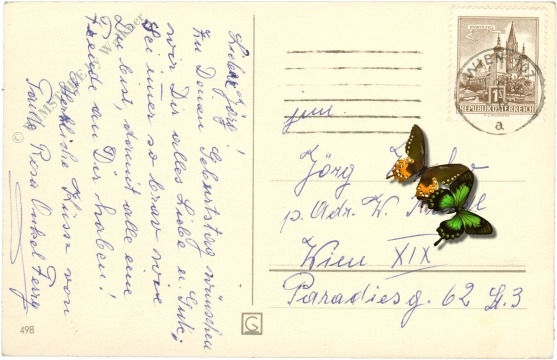 Lieber Jörg!
Zu Deinem Geburtstag wünschen
wir Dir alles Liebe u. Gute,
sei immer so brav wie
Du bist, damit alle eine
Freude an Dir haben!
Herzliche Küsse von
Tante Rosa Onkel Ferry
498
G
WIEN
a
REPUBLIK ÖSTERREICH
1S
Jörg
p. Adr. W.
Wien XIX
Paradiesg. 62 St. 3